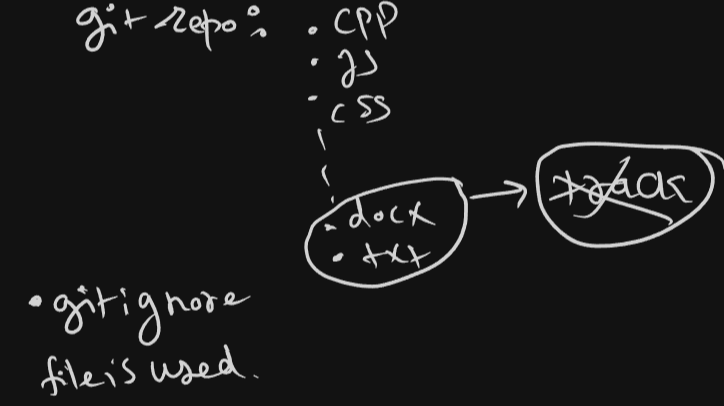 git repo:
.cpp
.js
.css
.docx
.txt
track
.gitignore
file is used.